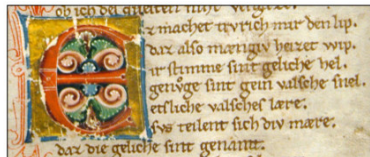 ob ich des
E
z machet trvrich mir den lip.
daz also mænigiv heizet wip.
ir stimme sint geliche hel.
genvͦge sint gein valsche snel.
etsliche valsches lære.
svs teilent sich div mære.
daz die geliche sint genamt.